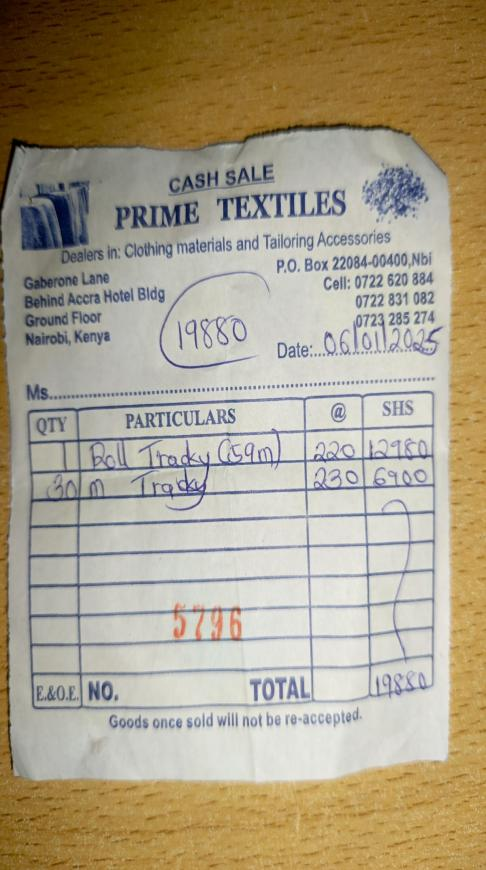 CASH SALE
PRIME TEXTILES
Dealers in: Clothing materials and Tailoring Accessories
Gaberone Lane
Behind Accra Hotel Bldg
Ground Floor
Nairobi, Kenya
P.O. Box 22084-00400,Nbi
Cell: 0722 620 884
0722 831 082
0723 285 274
19880
Date:...06/01/2025
Ms.
QTY PARTICULARS @ SHS
1 Roll Tracky (59m) 220 12980
30 m Tracky 230 6900
5796
E.&O.E. NO. TOTAL 19880
Goods once sold will not be re-accepted.